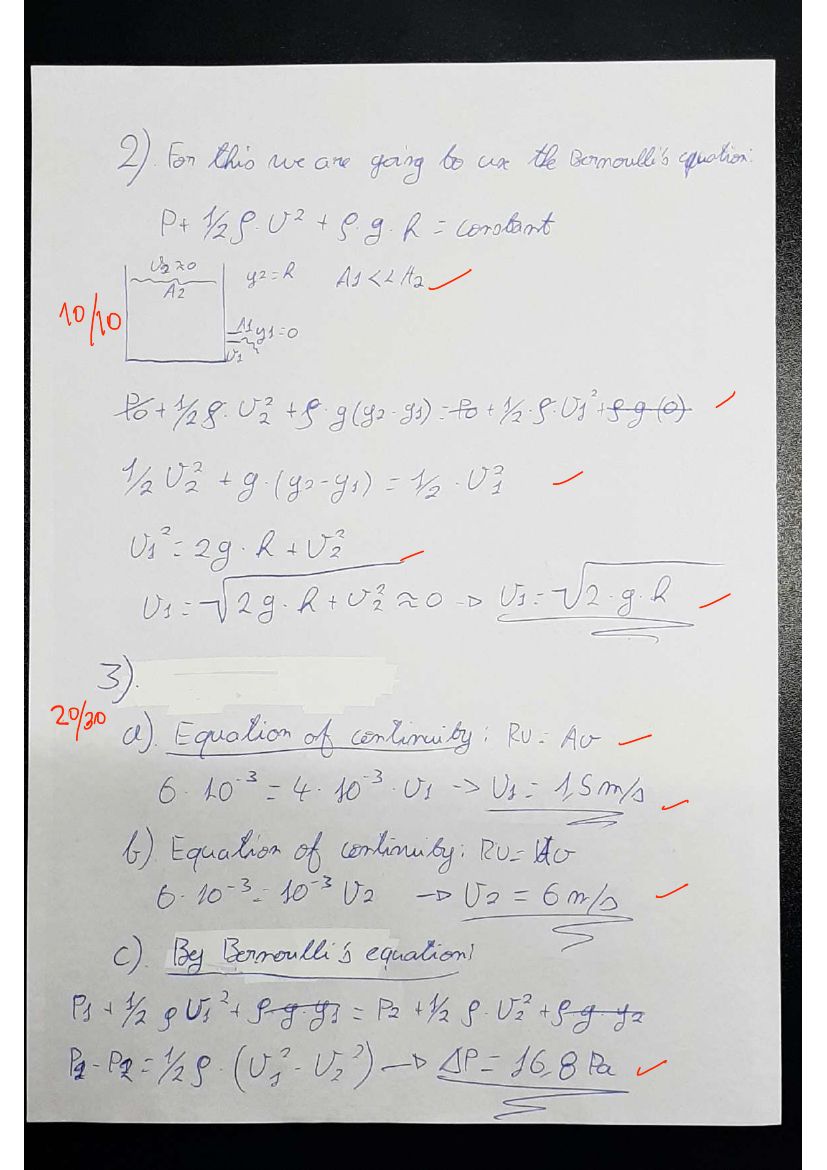 2). For this we are going to use the Bernoulli's equation:
P + 1/2 ρ·v² + ρ·g·h = constant
v₂≈0
A₂
y₂ = h
A₁ << A₂
10/10
A₁ y₁=0
v₁
P₀ + 1/2 ρ·v₂² + ρ·g(y₂-y₁) = P₀ + 1/2·ρ·v₁² + ρ·g·(0)
1/2 v₂² + g·(y₂-y₁) = 1/2·v₁²
v₁² = 2g·h + v₂²
v₁ = √2g·h + v₂² ≈ 0 → v₁ = √2·g·h
3).
20/30
a). Equation of continuity: Rv = Av
6·10⁻³ = 4·10⁻³·v₁ → v₁ = 1,5 m/s
b) Equation of continuity: Rv = Av
6·10⁻³ = 10⁻³ v₂ → v₂ = 6 m/s
c). By Bernoulli's equation:
P₁ + 1/2 ρ v₁² + ρ·g·y₁ = P₂ + 1/2 ρ·v₂² + ρ·g·y₂
P₂ - P₁ = 1/2 ρ·(v₁² - v₂²) → ΔP = 16,8 Pa